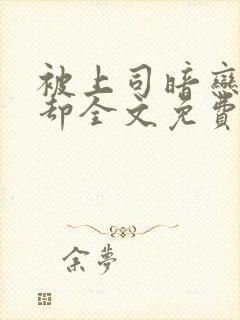 被上司暗戀
却全文免費
余夢